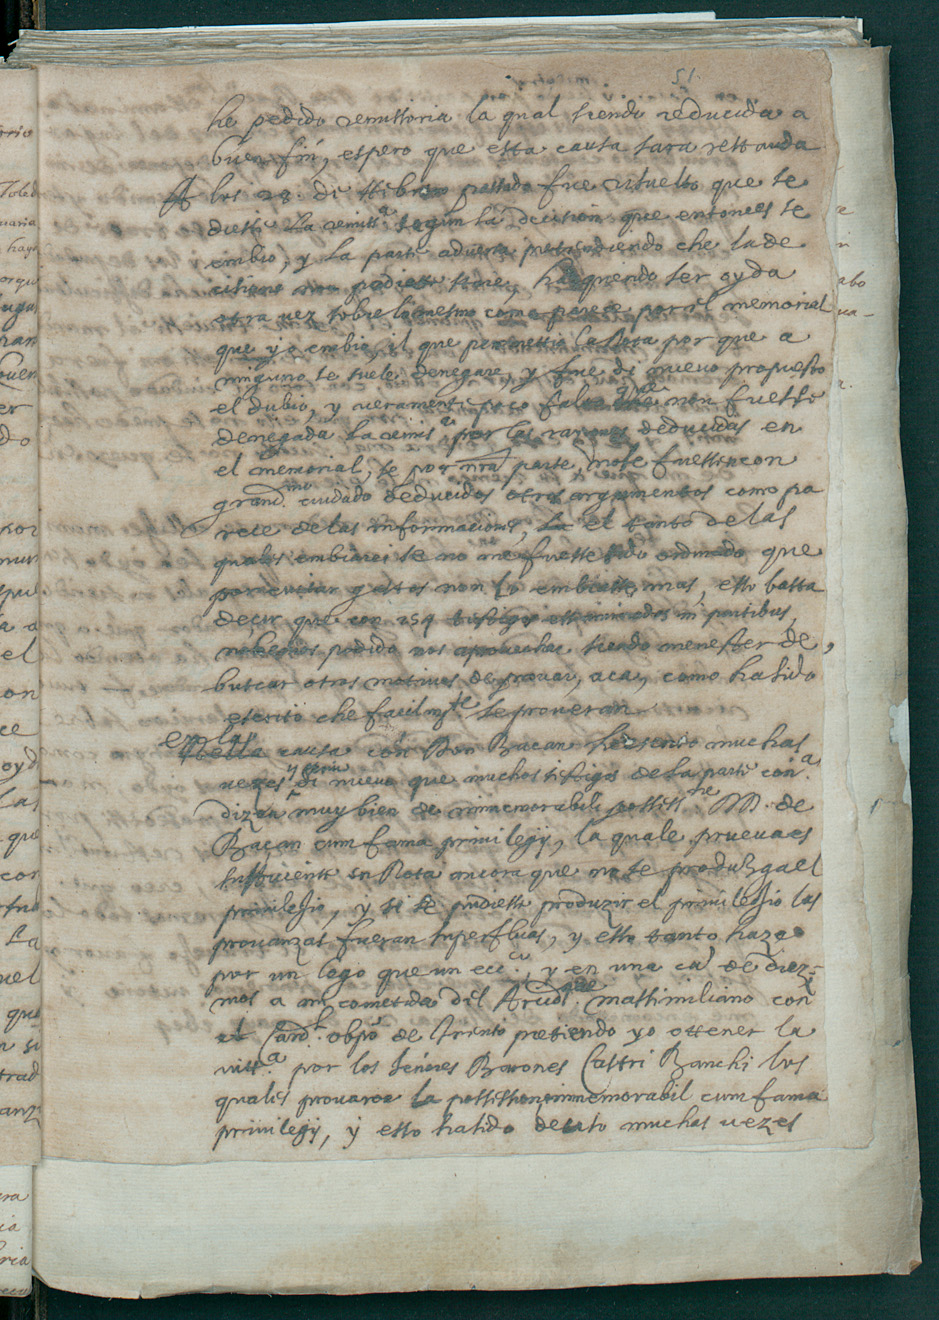 51
he pedido remissoria la qual siendo reducida a
buen fin, espero que esta causa sara restaurada
A los 28. di passado fue risuelto que se
diesse la remiss.ª segun la decision que entonces se
embio, y la parte adversa pretendiendo che la de
cisione non podiesse stare, ha querido ser oyda
otra vez sobre lo mesmo como parece por il memorial
que yo embio, il que permettio la Rota por que a
ninguno se suele denegare, y fue di nuevo propuesto
el dubio, y veramente poco falto que non fuesse
denegada la remis.ª por las razones deducidas en
el memorial, se por nra parte no se fuessen con
grand.mo cuidado deducidos otros argumentos como pa
rece de las informaciones, el tanto de las
quales embiarei se no me fuesse sido ordinado que
por evitar gastos non lo embiasse mas, esto basta
deçir que con 259 testigos essaminados in partibus,
no hemos podido nos aprovechar siendo menester de
buscar otros motivos de provar, aca, como ha sido
escrito che facilmte se proveran
En la causa con Don Baçan he scritto muchas
vezes y di nuevo que muchos testigos de la parte con.ª
dizen muy bien de inmemorabili possess.ne M. de
Baçan cum fama privilegij, la quale prueva es
sufficiente en Rota ancora que no se produzga el
privilegio, y si se pudiesse produzir el privilegio las
provanzas fueran superfluas, y esto tanto haze
por un lego que un ecc.co, y en una ca de diez-
mos a mi cometida del Arcid. que Massimiliano con
el Card.l obpo de Trento pretiendo yo ottener la
vitt.ª por los señores Barones Castri Banchi los
quales provaron la possession inmemorabil cum fama
privilegij, y esto ha sido decito muchas vezes